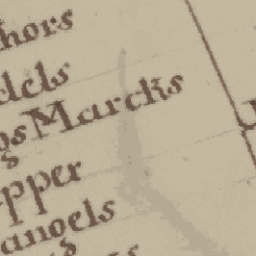 hors
dels
gs Marcks
pper
angels